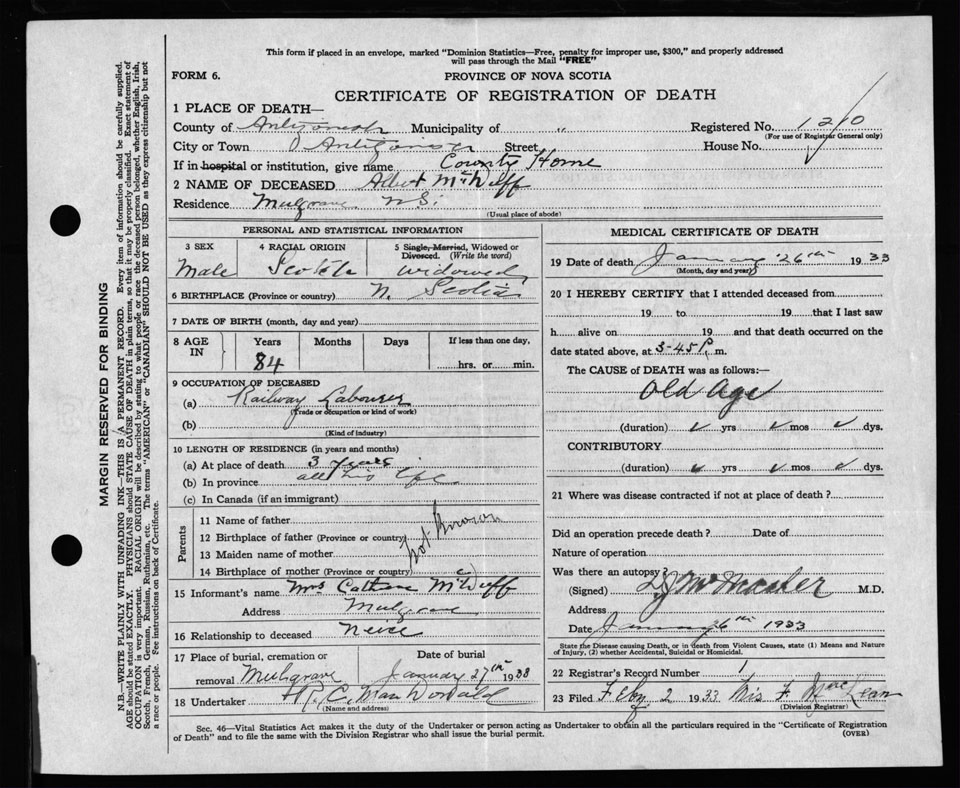 This form if placed in an envelope, marked "Dominion Statistics—Free, penalty for improper use, $300," and properly addressed
will pass through the Mail "FREE"
FORM 6.
PROVINCE OF NOVA SCOTIA
CERTIFICATE OF REGISTRATION OF DEATH
1 PLACE OF DEATH—
County of Antigonish Municipality of " Registered No. 1210
(For use of Registrar General only)
City or Town Antigonish Street House No.
If in hospital or institution, give name County Home
2 NAME OF DECEASED Albert McDuff
Residence Mulgrave N.S.
(Usual place of abode)
PERSONAL AND STATISTICAL INFORMATION
3 SEX
Male
4 RACIAL ORIGIN
Scotch
5 Single, Married, Widowed or
Divorced. (Write the word)
widowed
6 BIRTHPLACE (Province or country) N. Scotia
7 DATE OF BIRTH (month, day and year)
8 AGE IN
Years Months Days If less than one day,
84 hrs. or min.
9 OCCUPATION OF DECEASED
(a) Railway Labourer
(Trade or occupation or kind of work)
(b)
(Kind of industry)
10 LENGTH OF RESIDENCE (in years and months)
(a) At place of death 3 years
(b) In province all his life
(c) In Canada (if an immigrant)
Parents
11 Name of father
12 Birthplace of father (Province or country)
13 Maiden name of mother
14 Birthplace of mother (Province or country)
Not Known
15 Informant's name Mrs McDuff
Address Mulgrave
16 Relationship to deceased Neice
17 Place of burial, cremation or
removal Mulgrave
Date of burial
January 27th 1933
18 Undertaker H.R.C. MacDonald
(Name and address)
MEDICAL CERTIFICATE OF DEATH
19 Date of death January 26th 1933
(Month, day and year)
20 I HEREBY CERTIFY that I attended deceased from
19 to 19 that I last saw
h alive on 19 and that death occurred on
date stated above, at 3-45 P. m.
The CAUSE of DEATH was as follows:
Old Age
(duration) yrs mos dys.
CONTRIBUTORY
(duration) yrs mos dys.
21 Where was disease contracted if not at place of death?
Did an operation precede death? Date of
Nature of operation
Was there an autopsy?
(Signed) McMaster M.D.
Address
Date January 26th 1933
State the Disease causing Death, or in death from Violent Causes, state (1) Means and Nature
of Injury, (2) whether Accidental, Suicidal or Homicidal.
22 Registrar's Record Number 1
23 Filed Feby 2 1933 Mis F. MacLean
(Division Registrar)
Sec. 46—Vital Statistics Act makes it the duty of the Undertaker or person acting as Undertaker to obtain all the particulars required in the "Certificate of Registration
of Death" and to file the same with the Division Registrar who shall issue the burial permit.
(OVER)
MARGIN RESERVED FOR BINDING
N.B.—WRITE PLAINLY WITH UNFADING INK—THIS IS A PERMANENT RECORD. Every item of information should be carefully supplied.
AGE should be stated EXACTLY. PHYSICIANS should STATE CAUSE OF DEATH in plain terms, so that it may be properly classified. Exact statement of
OCCUPATION is very important. RACIAL ORIGIN will be described by stating to what people or race the deceased person belonged, whether English, Irish,
Scotch, French, German, Russian, Ruthenian, etc. The terms "AMERICAN" or "CANADIAN" SHOULD NOT BE USED as they express citizenship but not
a race or people. See instructions on back of Certificate.